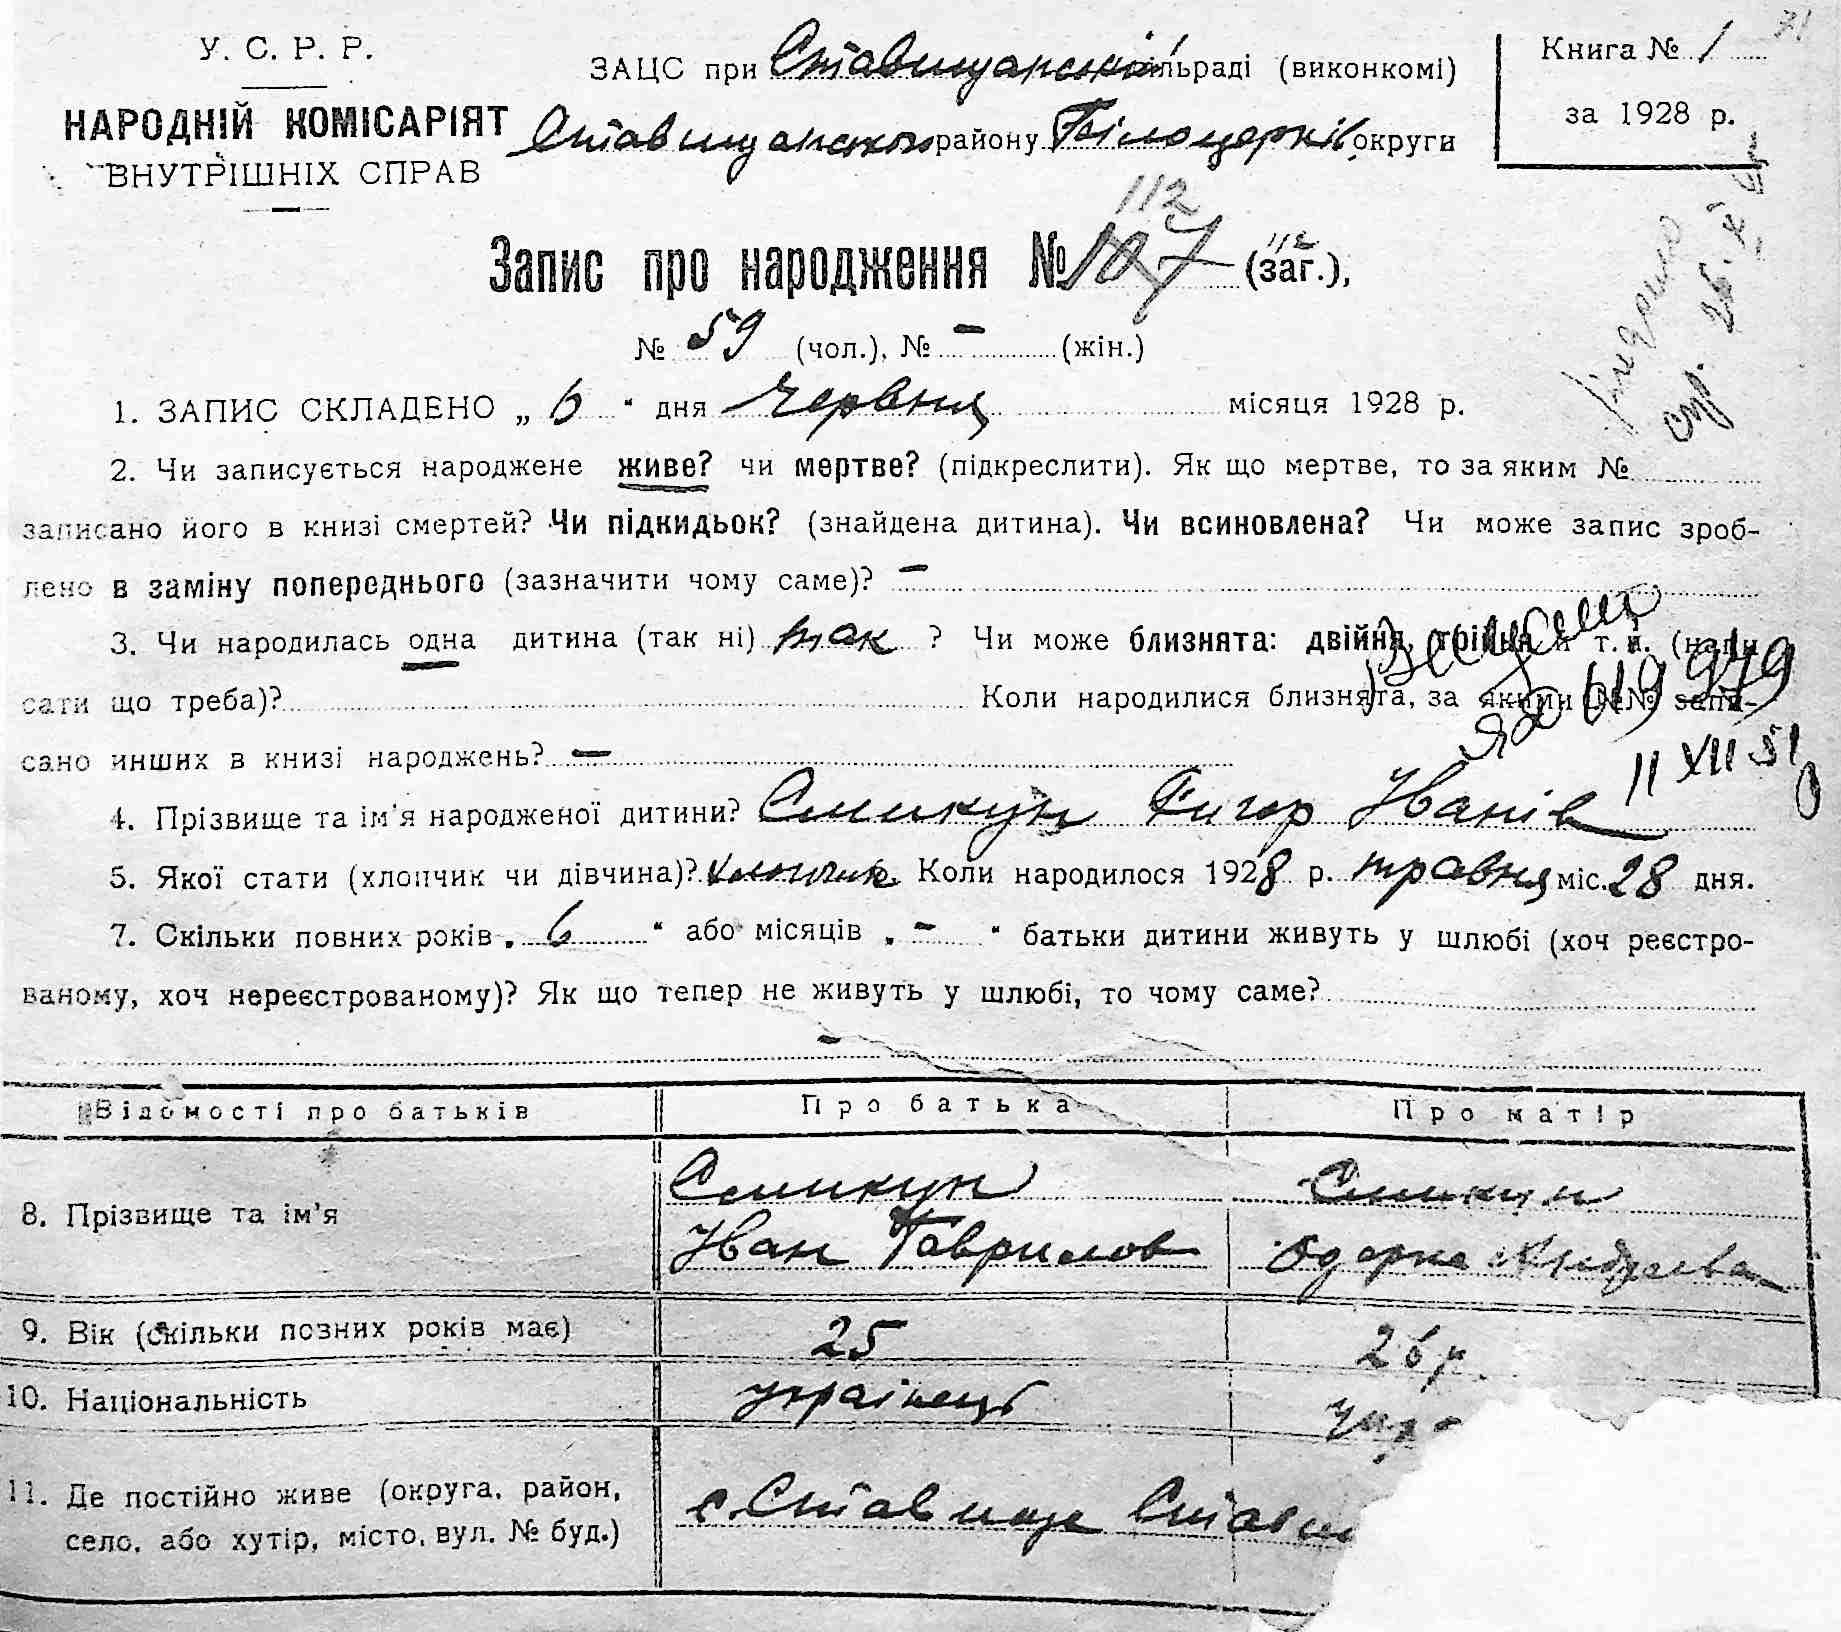 У. С. Р. Р.
НАРОДНІЙ КОМІСАРІЯТ
ВНУТРІШНІХ СПРАВ
ЗАЦС при Ставищарській сільраді (виконкомі)
Ставищанського району Білоцерків округи
Книга № 1
за 1928 р.
71
112
Запис про народження № 107 (заг.),
112
№ 59 (чол.), № – (жін.)
1. ЗАПИС СКЛАДЕНО „ 6 “ дня Червня місяця 1928 р.
2. Чи записується народжене живе? чи мертве? (підкреслити). Як що мертве, то за яким №
записано його в книзі смертей? Чи підкидьок? (знайдена дитина). Чи всиновлена? Чи може запис зроб-
лено в заміну попереднього (зазначити чому саме)? –
3. Чи народилась одна дитина (так ні) так ? Чи може близнята: двійня, трійня и т. и. (напи
сати що треба)? Коли народилися близнята, за якими №№ запи-
сано инших в книзі народжень? –
619 979
11 XII 51
4. Прізвище та ім'я народженої дитини? Смикун Григор Іванів
5. Якої стати (хлопчик чи дівчина)? хлопчик Коли народилося 1928 р. травня міс. 28 дня.
7. Скільки повних років „ 6 “ або місяців „ – “ батьки дитини живуть у шлюбі (хоч реєстро-
ваному, хоч нереєстрованому)? Як що тепер не живуть у шлюбі, то чому саме?
–
Відомості про батьків Про батька Про матір
8. Прізвище та ім'я Смикун Іван Гаврилов Смикун Одарка Андреева
9. Вік (скільки повних років має) 25 26 р.
10. Національність українець Укр
11. Де постійно живе (округа, район,
село, або хутір, місто, вул. № буд.) с. Ставище Ставищ